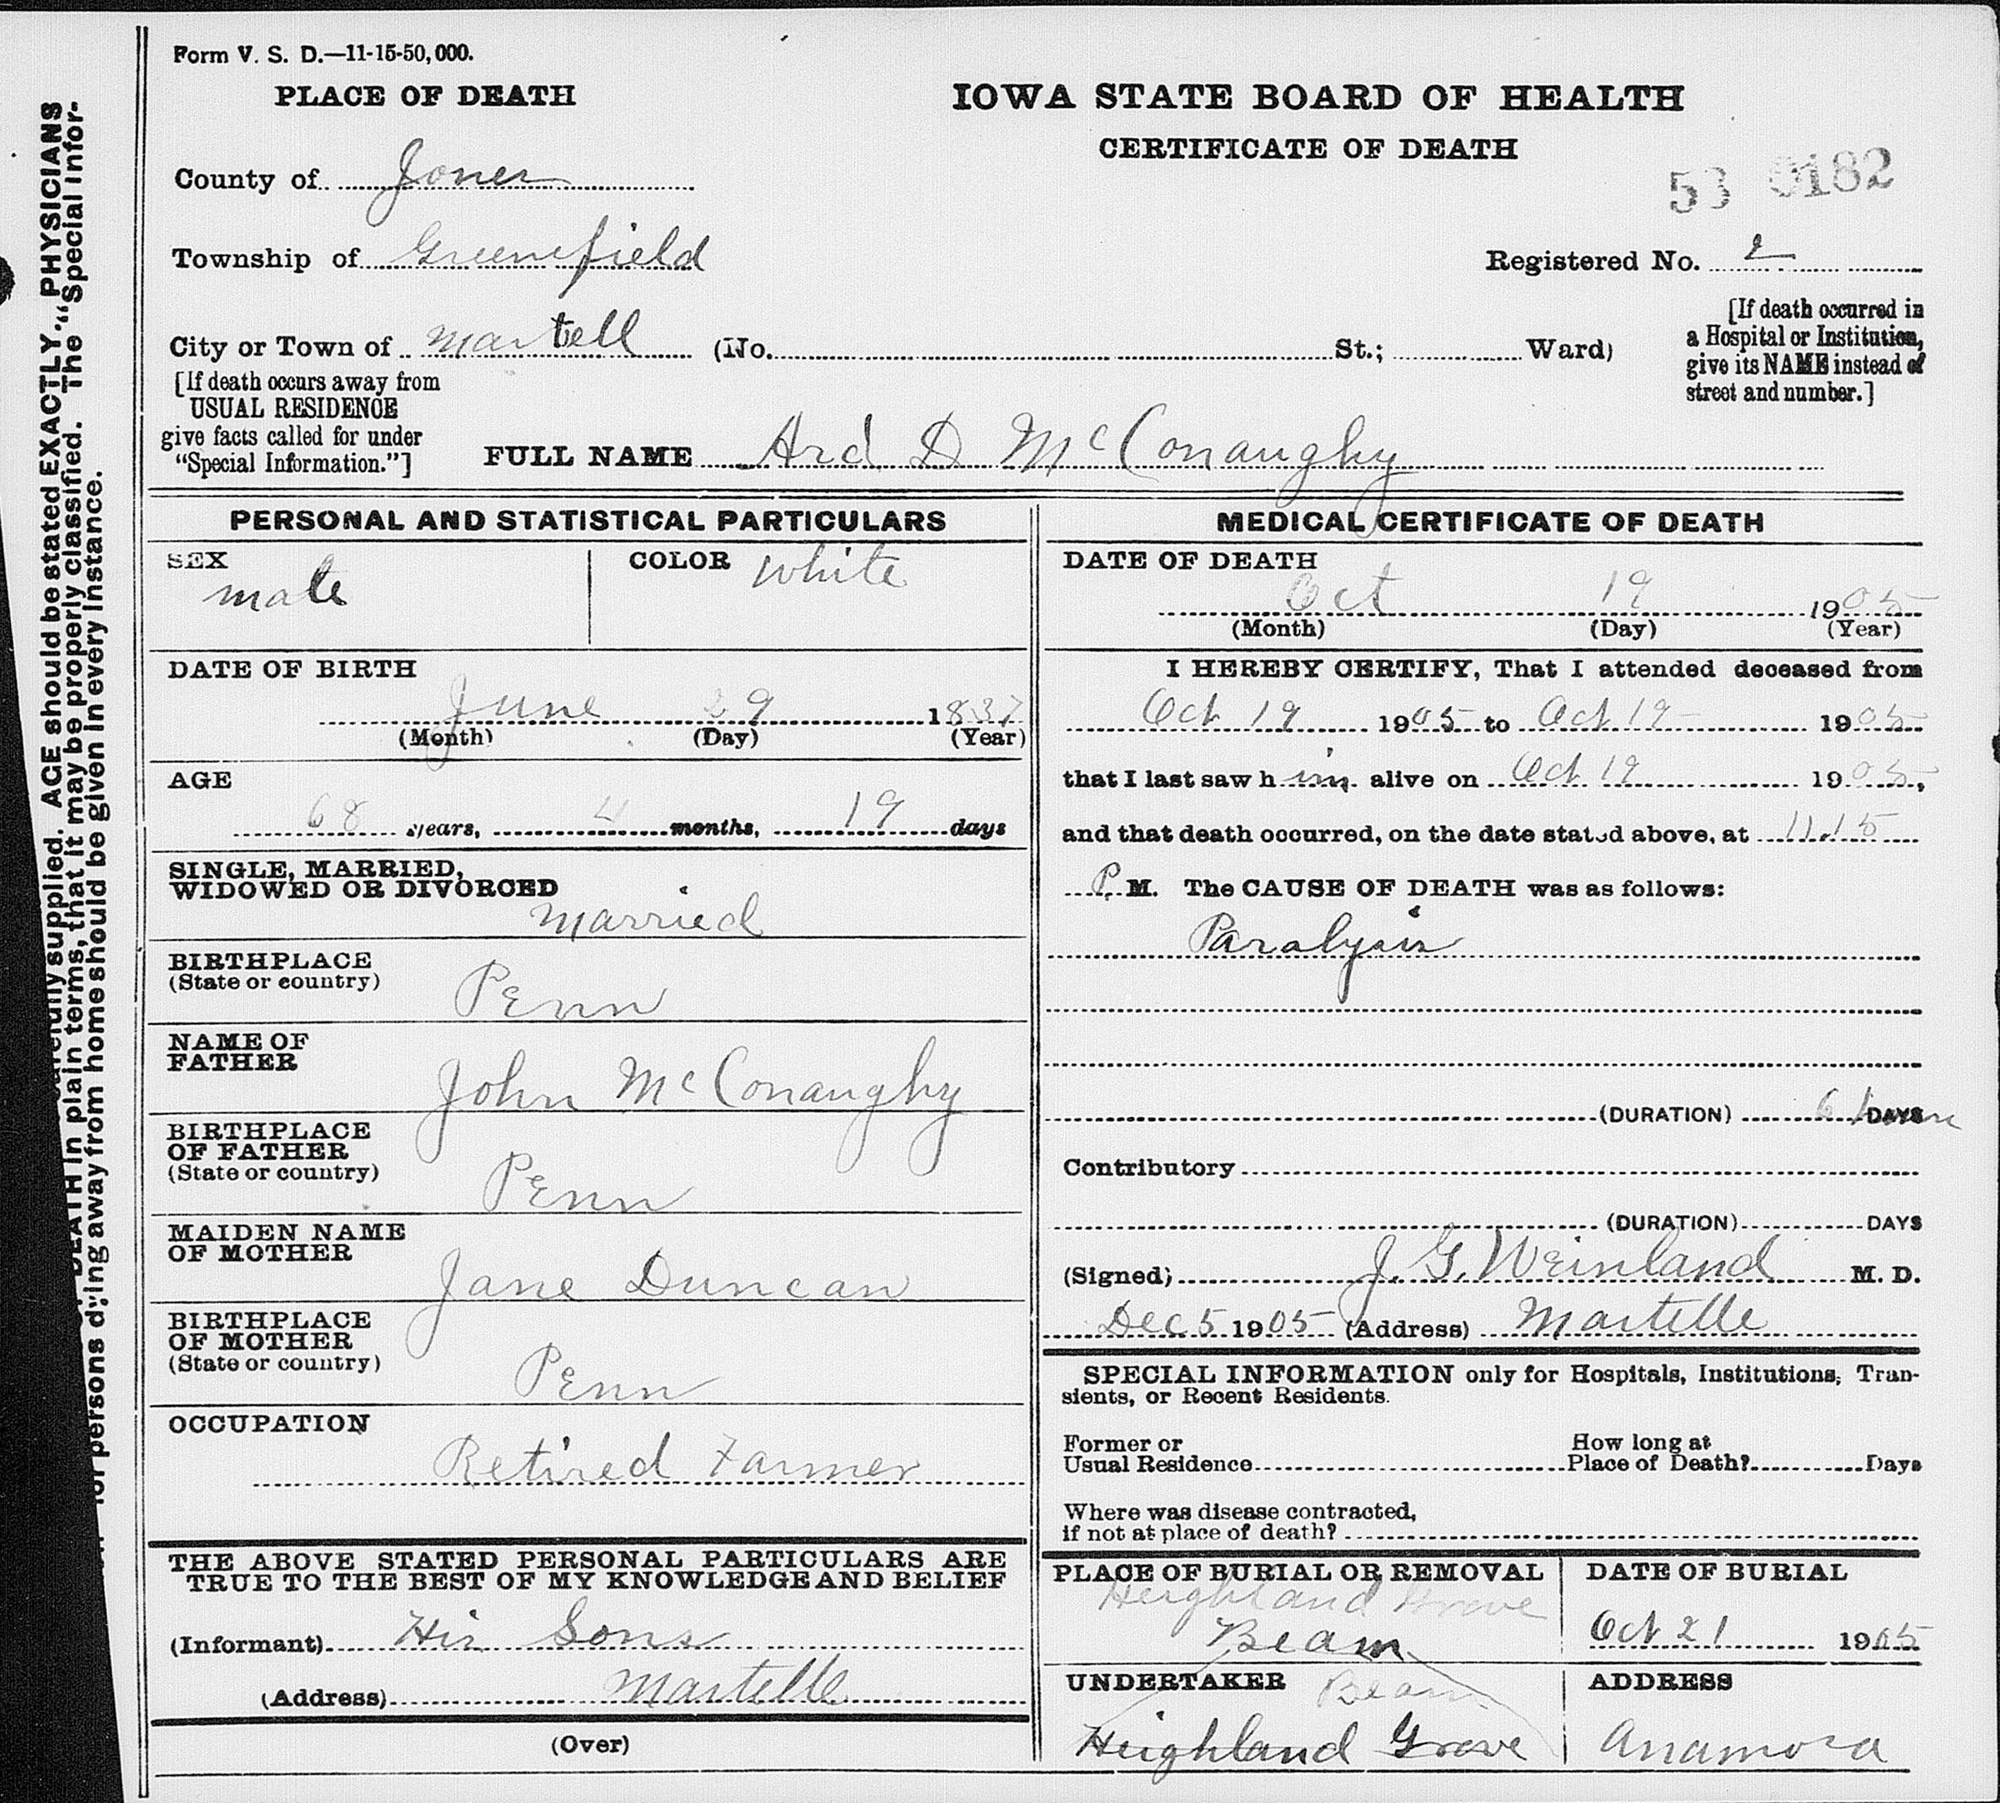 Form V. S. D.—11-15-50,000.
PLACE OF DEATH
IOWA STATE BOARD OF HEALTH
CERTIFICATE OF DEATH
53 0182
County of Jones
Township of Greenfield
Registered No. 2
City or Town of Martell (No. St.; Ward)
[If death occurred in
a Hospital or Institution,
give its NAME instead of
street and number.]
[If death occurs away from
USUAL RESIDENCE
give facts called for under
"Special Information."]
FULL NAME Ard D McConaughy
PERSONAL AND STATISTICAL PARTICULARS
SEX male
COLOR white
DATE OF BIRTH
June 29 1837
(Month) (Day) (Year)
AGE
68 years, 4 months, 19 days
SINGLE, MARRIED,
WIDOWED OR DIVORCED
Married
BIRTHPLACE
(State or country) Penn
NAME OF
FATHER John McConaughy
BIRTHPLACE
OF FATHER
(State or country) Penn
MAIDEN NAME
OF MOTHER Jane Duncan
BIRTHPLACE
OF MOTHER
(State or country) Penn
OCCUPATION
Retired Farmer
THE ABOVE STATED PERSONAL PARTICULARS ARE
TRUE TO THE BEST OF MY KNOWLEDGE AND BELIEF
(Informant) His Sons
(Address) Martelle
(Over)
MEDICAL CERTIFICATE OF DEATH
DATE OF DEATH
Oct 19 1905
(Month) (Day) (Year)
I HEREBY CERTIFY, That I attended deceased from
Oct 19 1905 to Oct 19 1905
that I last saw him alive on Oct 19 1905,
and that death occurred, on the date stated above, at 11.15
P. M. The CAUSE OF DEATH was as follows:
Paralysis
(DURATION) 6 DAYS
Contributory
(DURATION) DAYS
(Signed) J. G. Weinland M. D.
Dec 5 1905 (Address) Martelle
SPECIAL INFORMATION only for Hospitals, Institutions, Tran-
sients, or Recent Residents.
Former or
Usual Residence
How long at
Place of Death? Days
Where was disease contracted,
if not at place of death?
PLACE OF BURIAL OR REMOVAL
Heighland Grove
Beam
DATE OF BURIAL
Oct 21 1905
UNDERTAKER Beam
Heighland Grove
ADDRESS
Anamosa
supplied. AGE should be stated EXACTLY. PHYSICIANS
DEATH in plain terms, that it may be properly classified. The "Special Infor-
for persons dying away from home should be given in every instance.